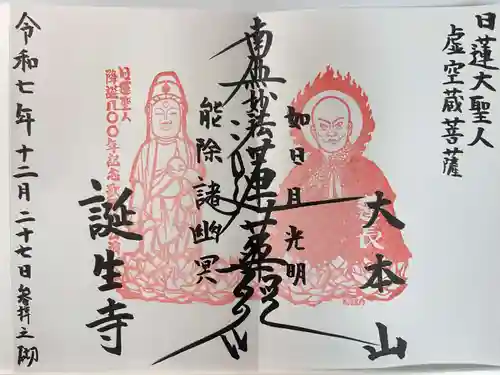 日蓮大聖人
虚空蔵菩薩
大本山
如日月光明
南無妙法蓮華経
能除諸幽冥
日蓮聖人
降誕八〇〇年記念
誕生寺
令和七年十二月二十七日参拝之砌